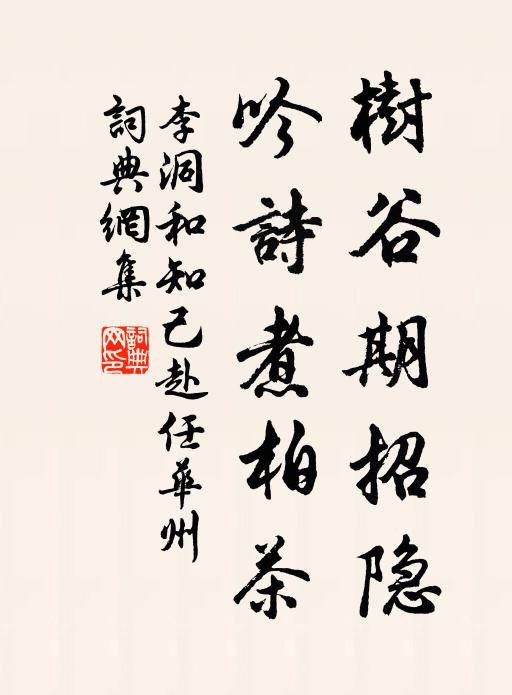 樹谷期招隐
吟詩煮柏茶
李洞和知己赴任華州
詞典網集
詞典
网印